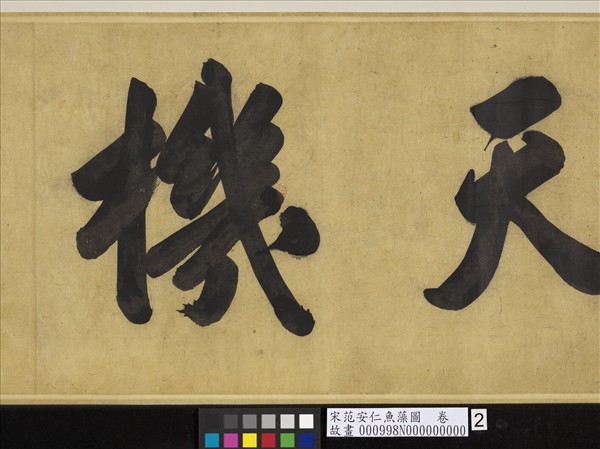 天機
宋范安仁魚藻圖 卷
故畫 000998N000000000
2